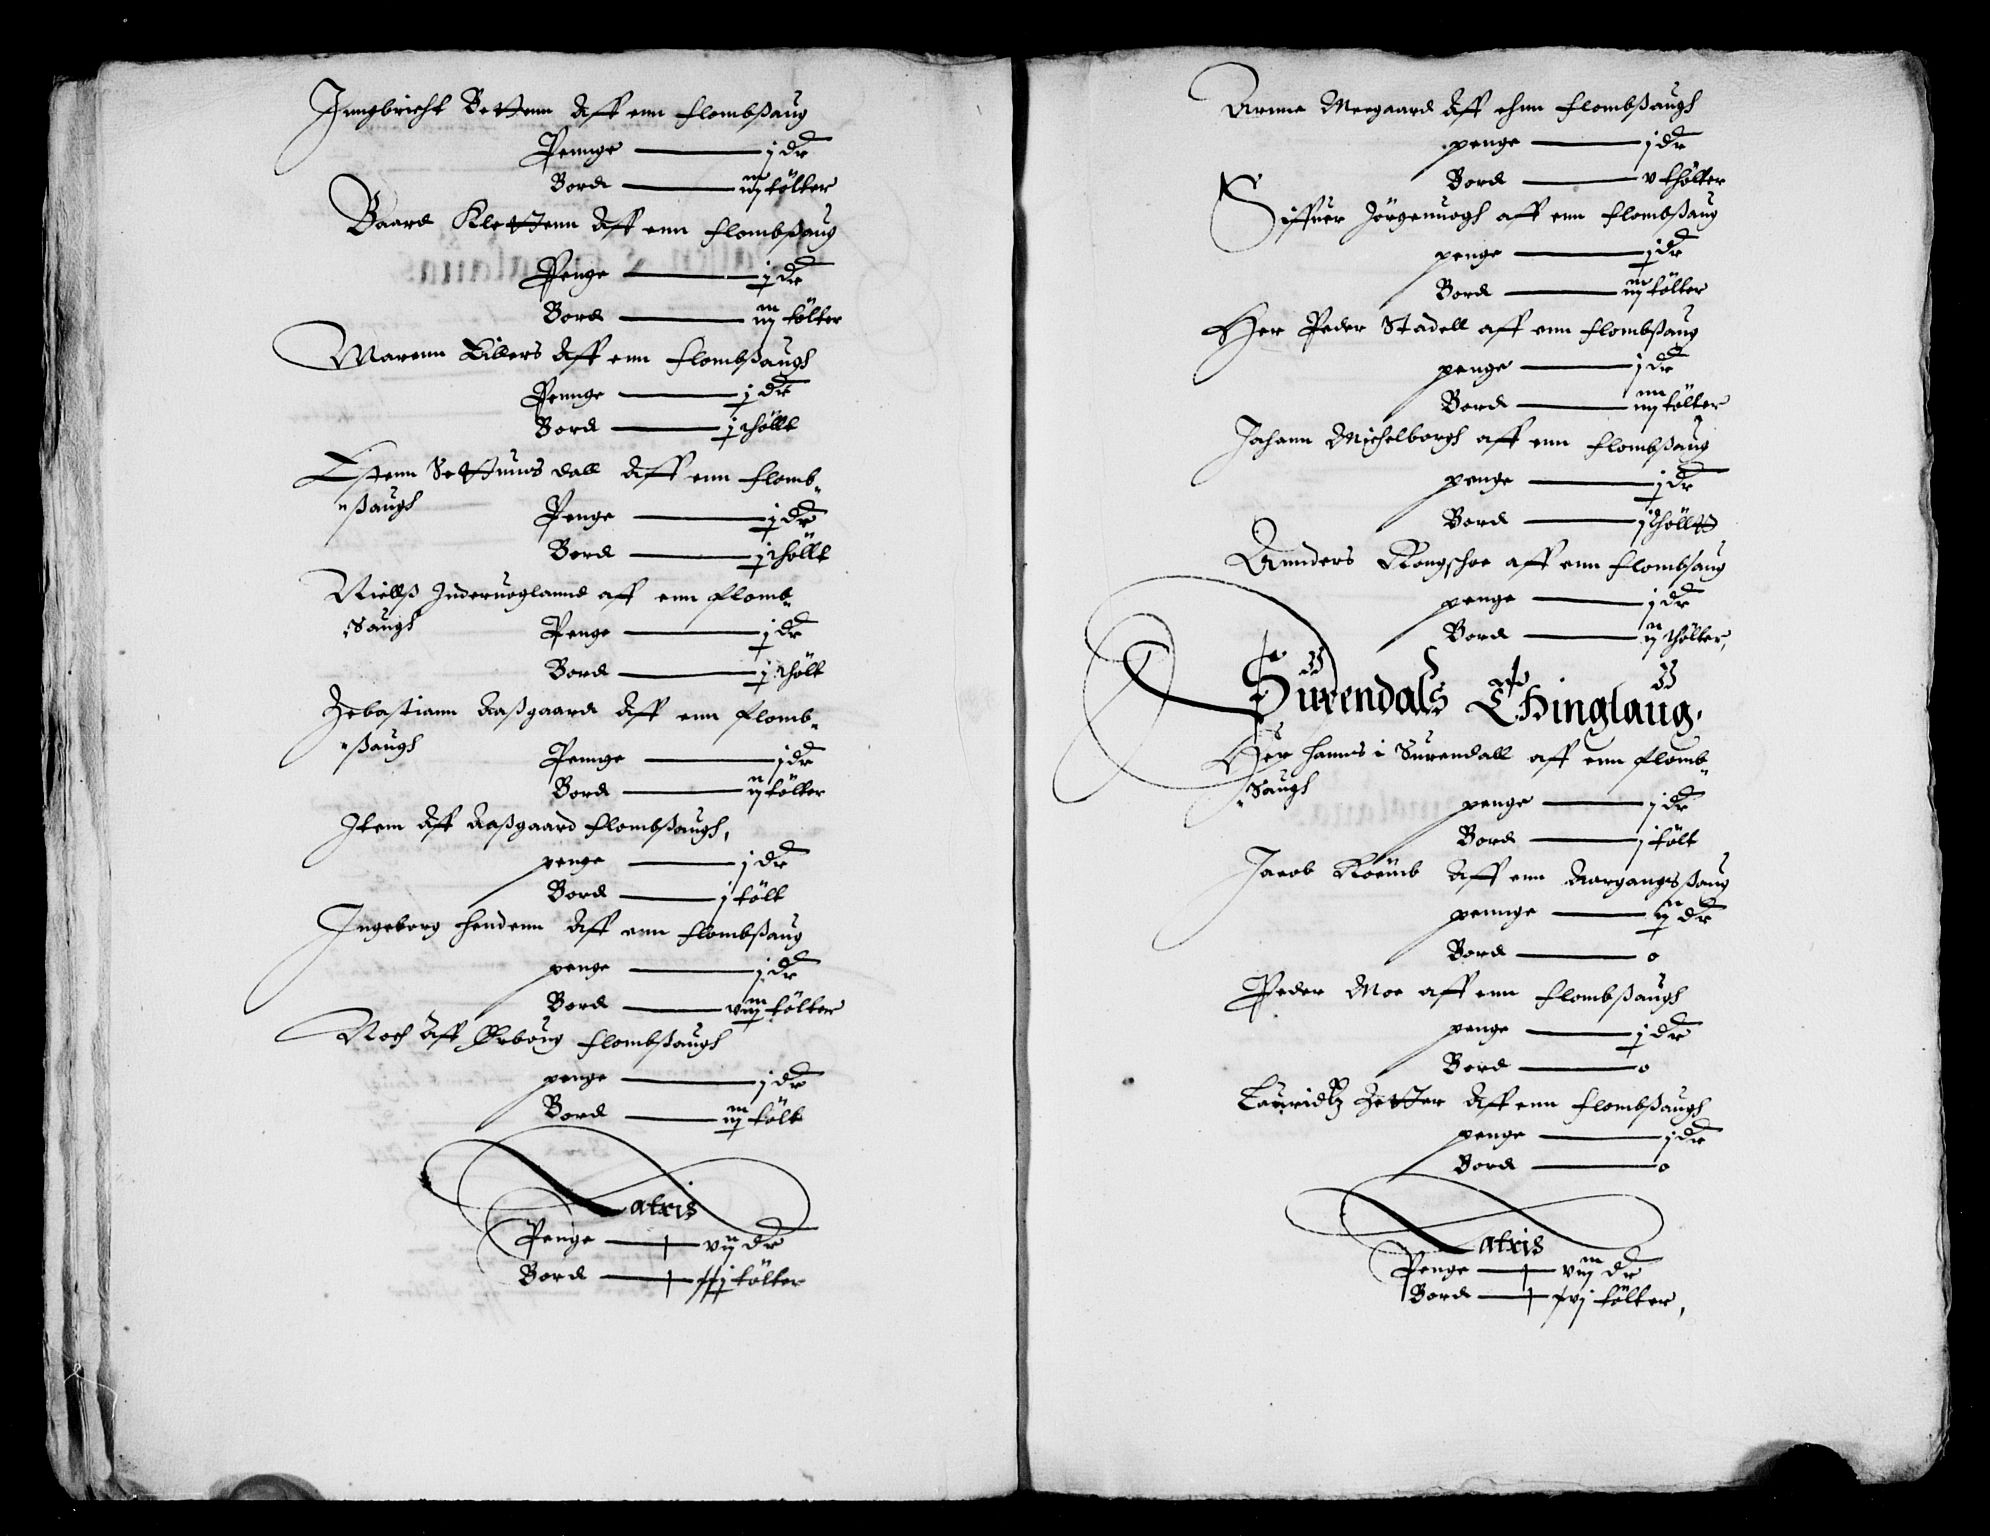 Jnngbricht Bettenn Aff enn flombßaug
Pennge — j dr
Bord — iiij tölter
Baard Klettenn Aff enn flombßaug
Penge — j dr
Bord — iiij tölter
Marenn Eilers Aff enn flombßaugh
Pennge — j dr
Bord — j thöllt
Estenn Settnnes dall Aff enn flomb-
-ßaugh
Penge — j dr
Bord — j thöllt
Niellß Inderuoglannd aff enn flomb-
-Saugh
Penge — j dr
Bord — j thölt
Zebastiann Aaßgaard Aff enn flomb-
-ßaugh
Pennge — j dr
Bord — ij tölter
Item Aff Aaßgaard flombßaugh,
penge — j dr
Bord — j tölt
Ingeborg hendenn Aff enn flombßaug
penge — j dr
Bord — viij tölter
Noch Aff Ørböug flombßaugh
penge — j dr
Bord — iij tölt
Latris
Penge — vij dr
Bord — xxj tölter
Arnne Meegaard Aff ehnn flombßaugh
penge — j dr
Bord — v thölter
Siffuer Jörgenuogh aff enn flombßaug
penge — j dr
Bord — iij tölter
Her Peder Stadell aff enn flombßaug
penge — j dr
Bord — iiij tölter
Johann Michelborgh aff enn flombßaug
penge — j dr
Bord — j thöllt
Annders Kongschoe aff enn flombsaug
penge — j dr
Bord — ij thölter,
Surendals Thinglaug.
Her hanns i Surendall aff enn flomb-
-Saugh
penge — j dr
Bord — j tölt
Jacob Aff enn Aargangsßaug
pennge — ij dr
Bord — o
Peder Moe aff enn flombßaugh
penge — j dr
Bord — o
Lauridtz Zetter Aff enn flombßaugh
penge — j dr
Bord — o
Latris
Penge — viij dr
Bord — xvj tölter,